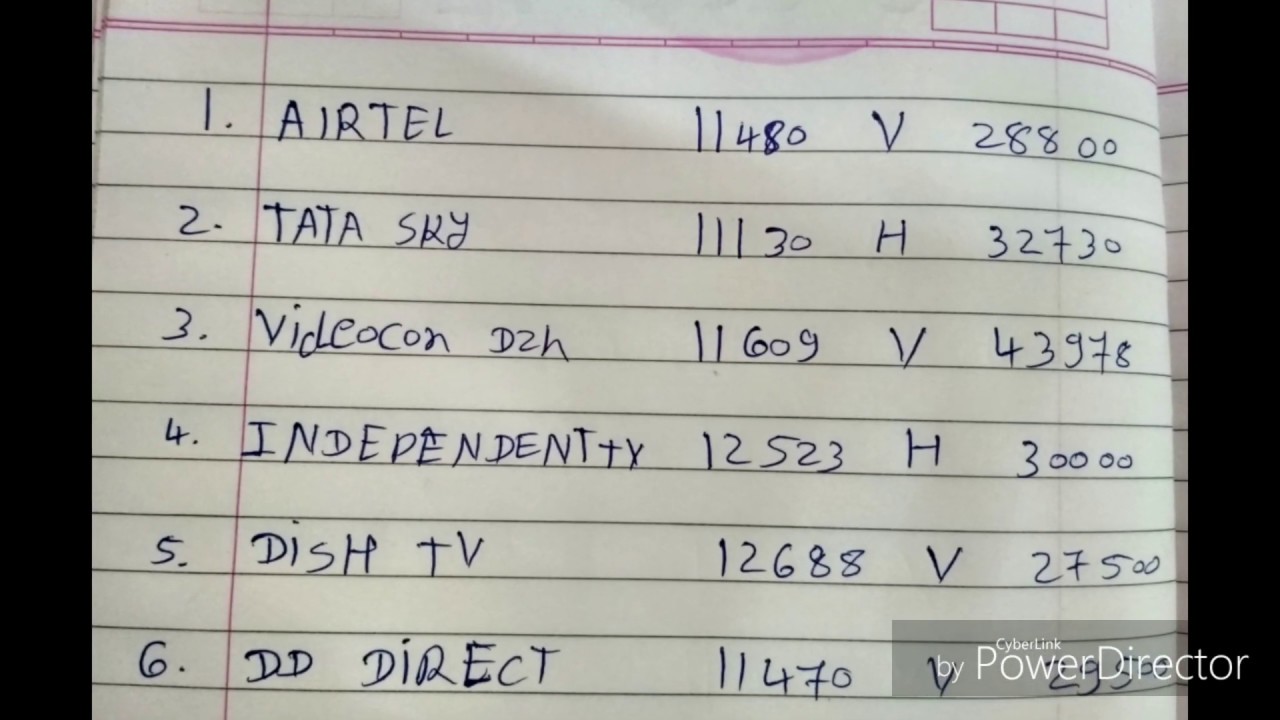 1. AIRTEL 11480 V 28800
2. TATA SKY 11130 H 32730
3. Videocon D2h 11609 V 43978
4. INDEPENDENT TV 12523 H 30000
5. DiSH TV 12688 V 27500
6. DD DiRECT 11470 V
CyberLink
by PowerDirector